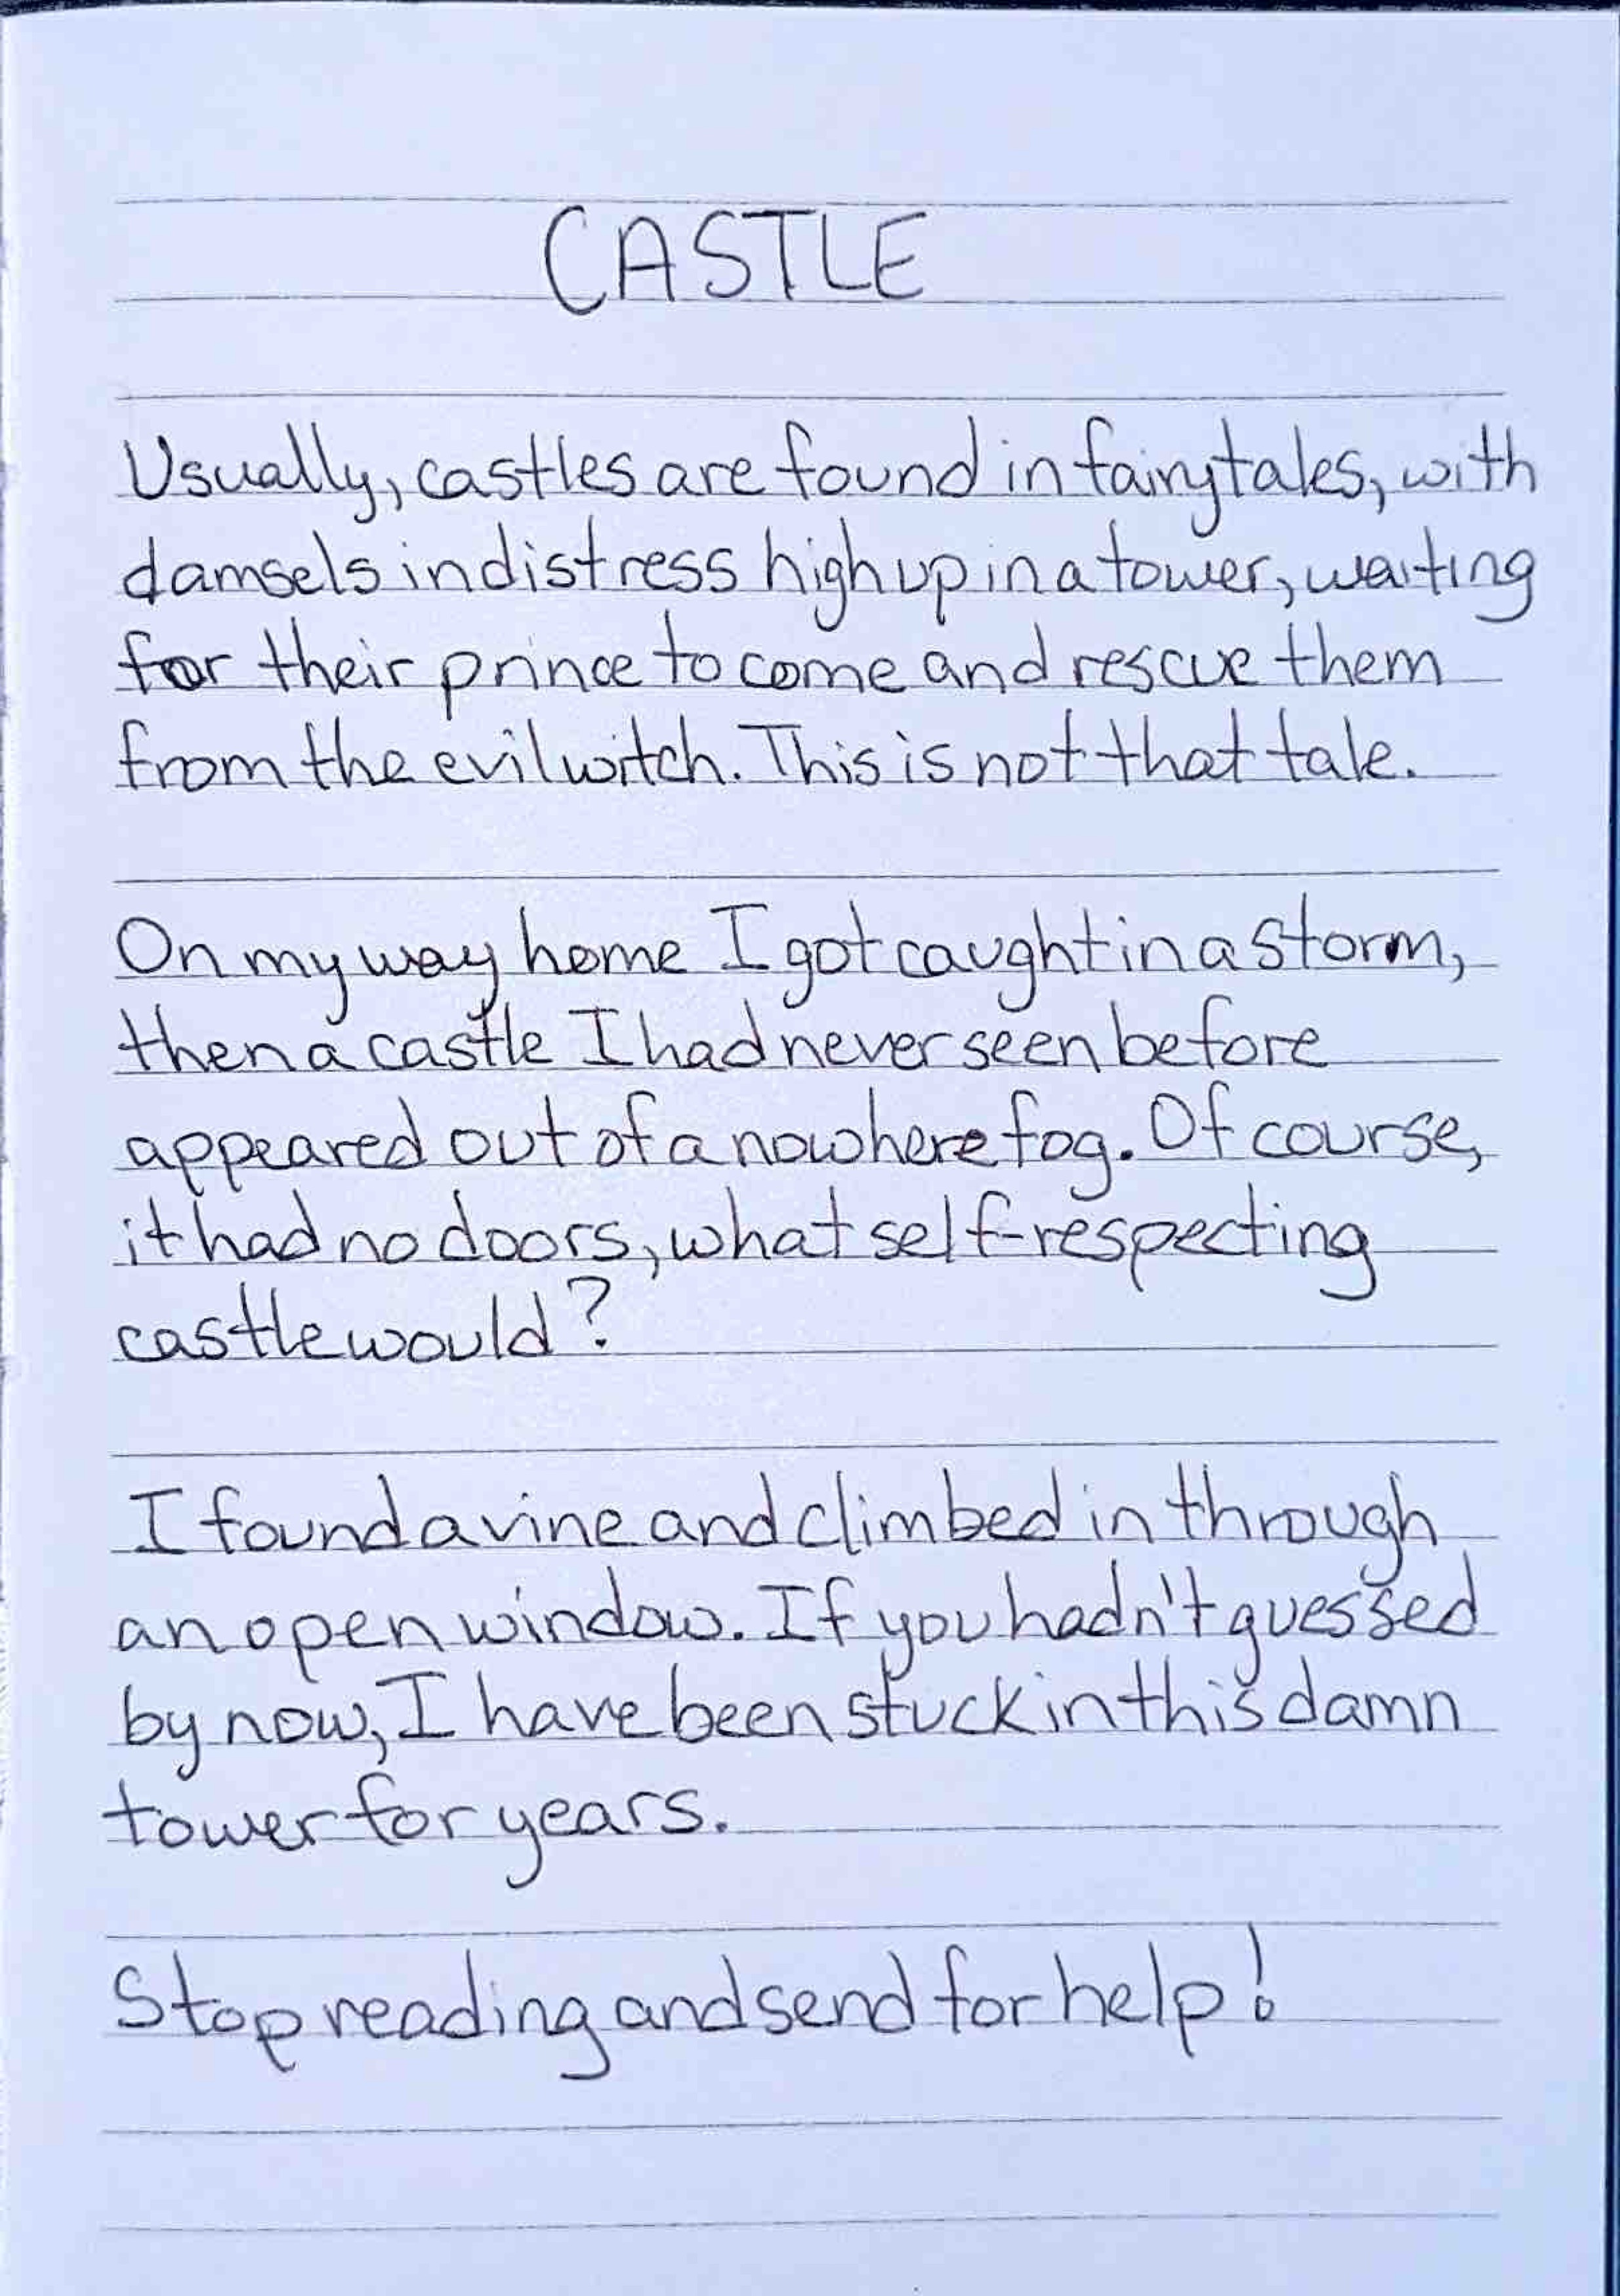 CASTLE
Usually, castles are found in fairytales, with
damsels in distress high up in a tower, waiting
for their prince to come and rescue them
from the evil witch. This is not that tale.
On my way home I got caught in a storm,
then a castle I had never seen before
appeared out of a nowhere fog. Of course,
it had no doors, what self-respecting
castle would?
I found a vine and climbed in through
an open window. If you hadn't guessed
by now, I have been stuck in this damn
tower for years.
Stop reading and send for help!